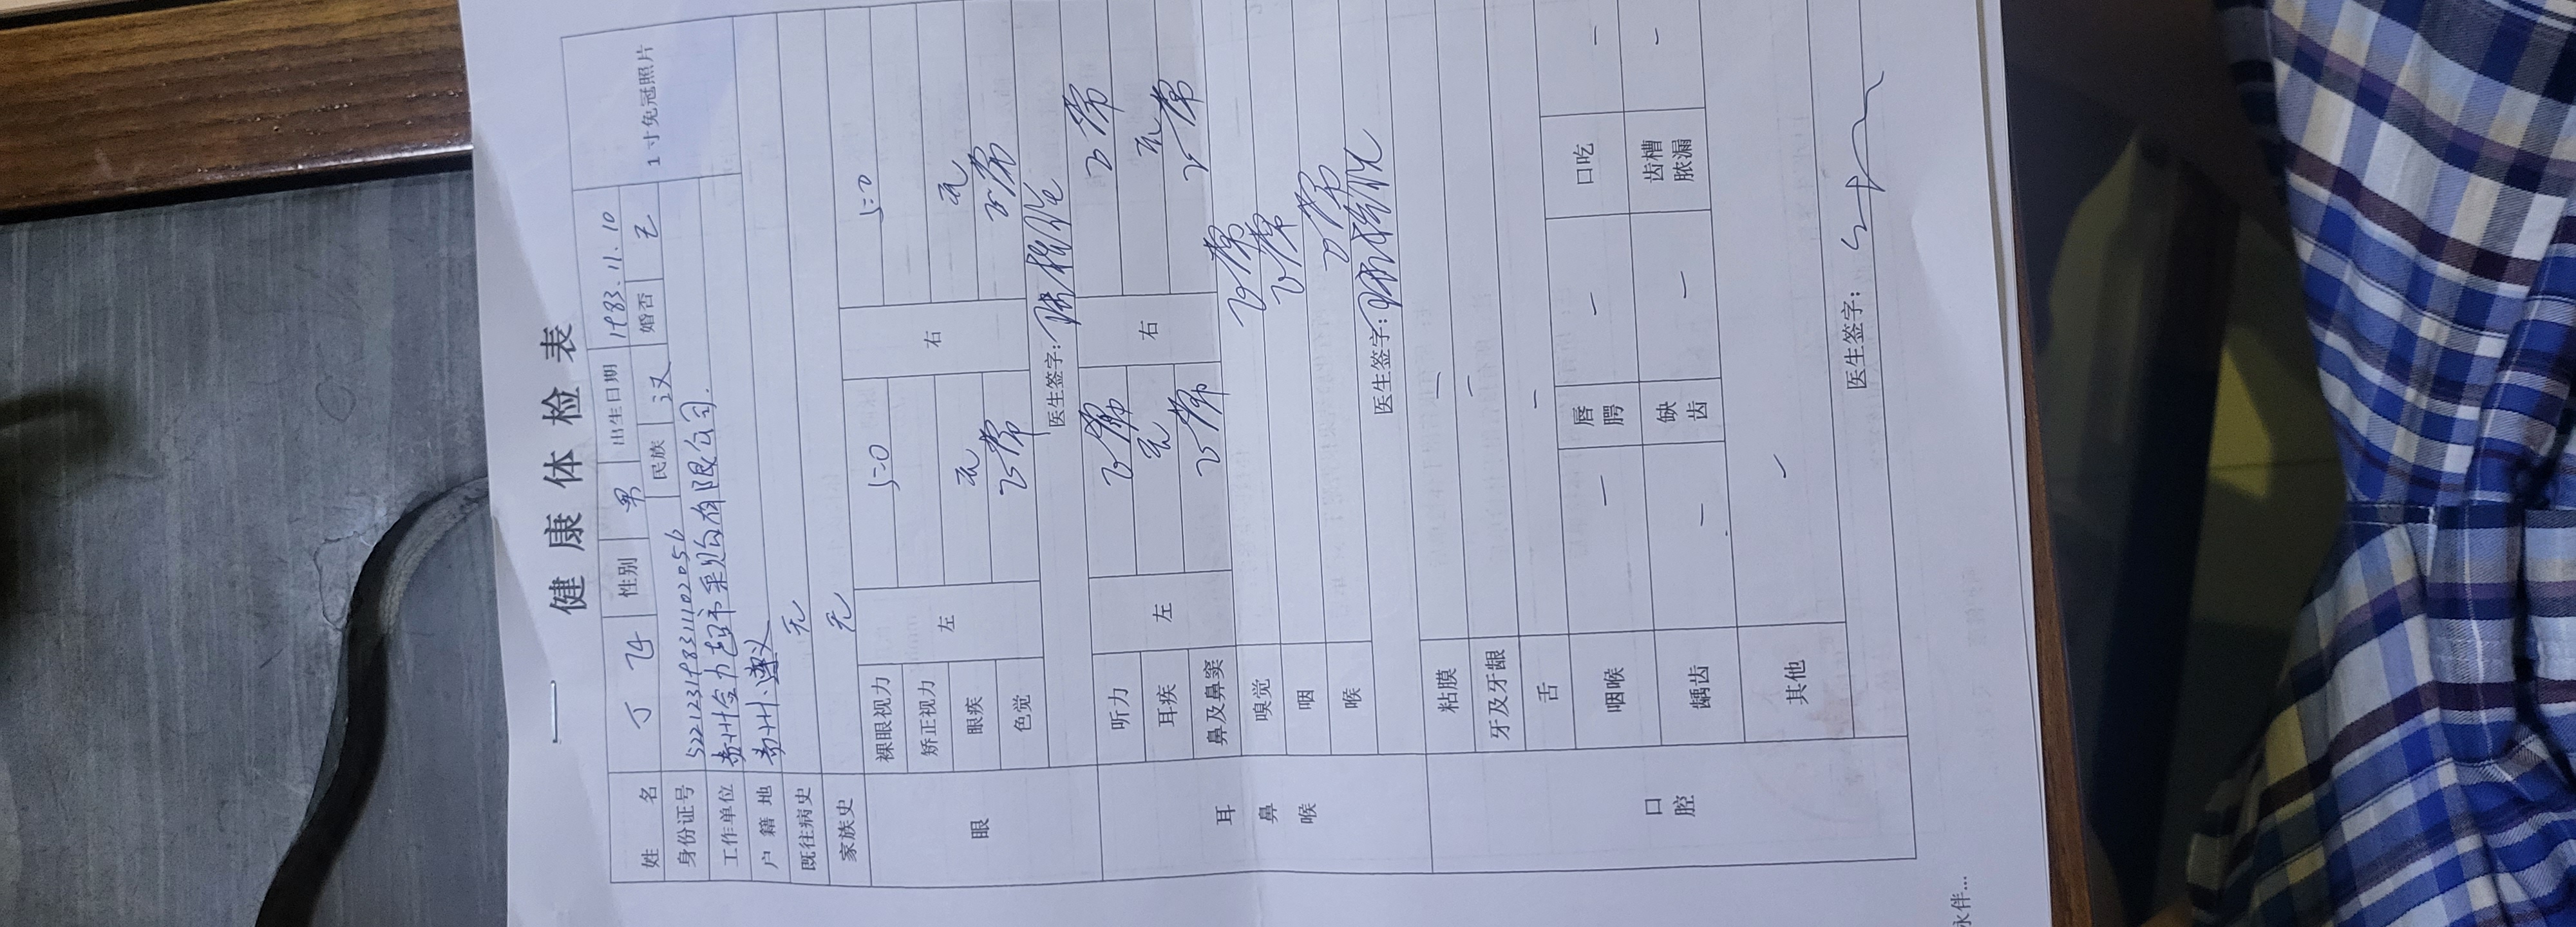 健康体检表
姓名 丁飞 性别 男 出生日期 1983.11.10 1寸免冠照片
身份证号 522123198311102056 民族 汉 婚否
工作单位 贵州合力超市采购有限公司.
户籍地 贵州.遵义
既往病史 无
家族史 无
眼 左 右
裸眼视力 5.0 5.0
矫正视力
眼疾 无 无
色觉 正常 正常
医生签字:
耳鼻喉 左 右
听力 正常 正常
耳疾 无 无
鼻及鼻窦 正常 正常
嗅觉 正常
咽 正常
喉 正常
医生签字:
口腔
粘膜 —
牙及牙龈 —
舌 —
咽喉 — 唇腭 — 口吃 —
龋齿 — 缺齿 — 齿槽脓漏 —
其他 —
医生签字:
永伴...